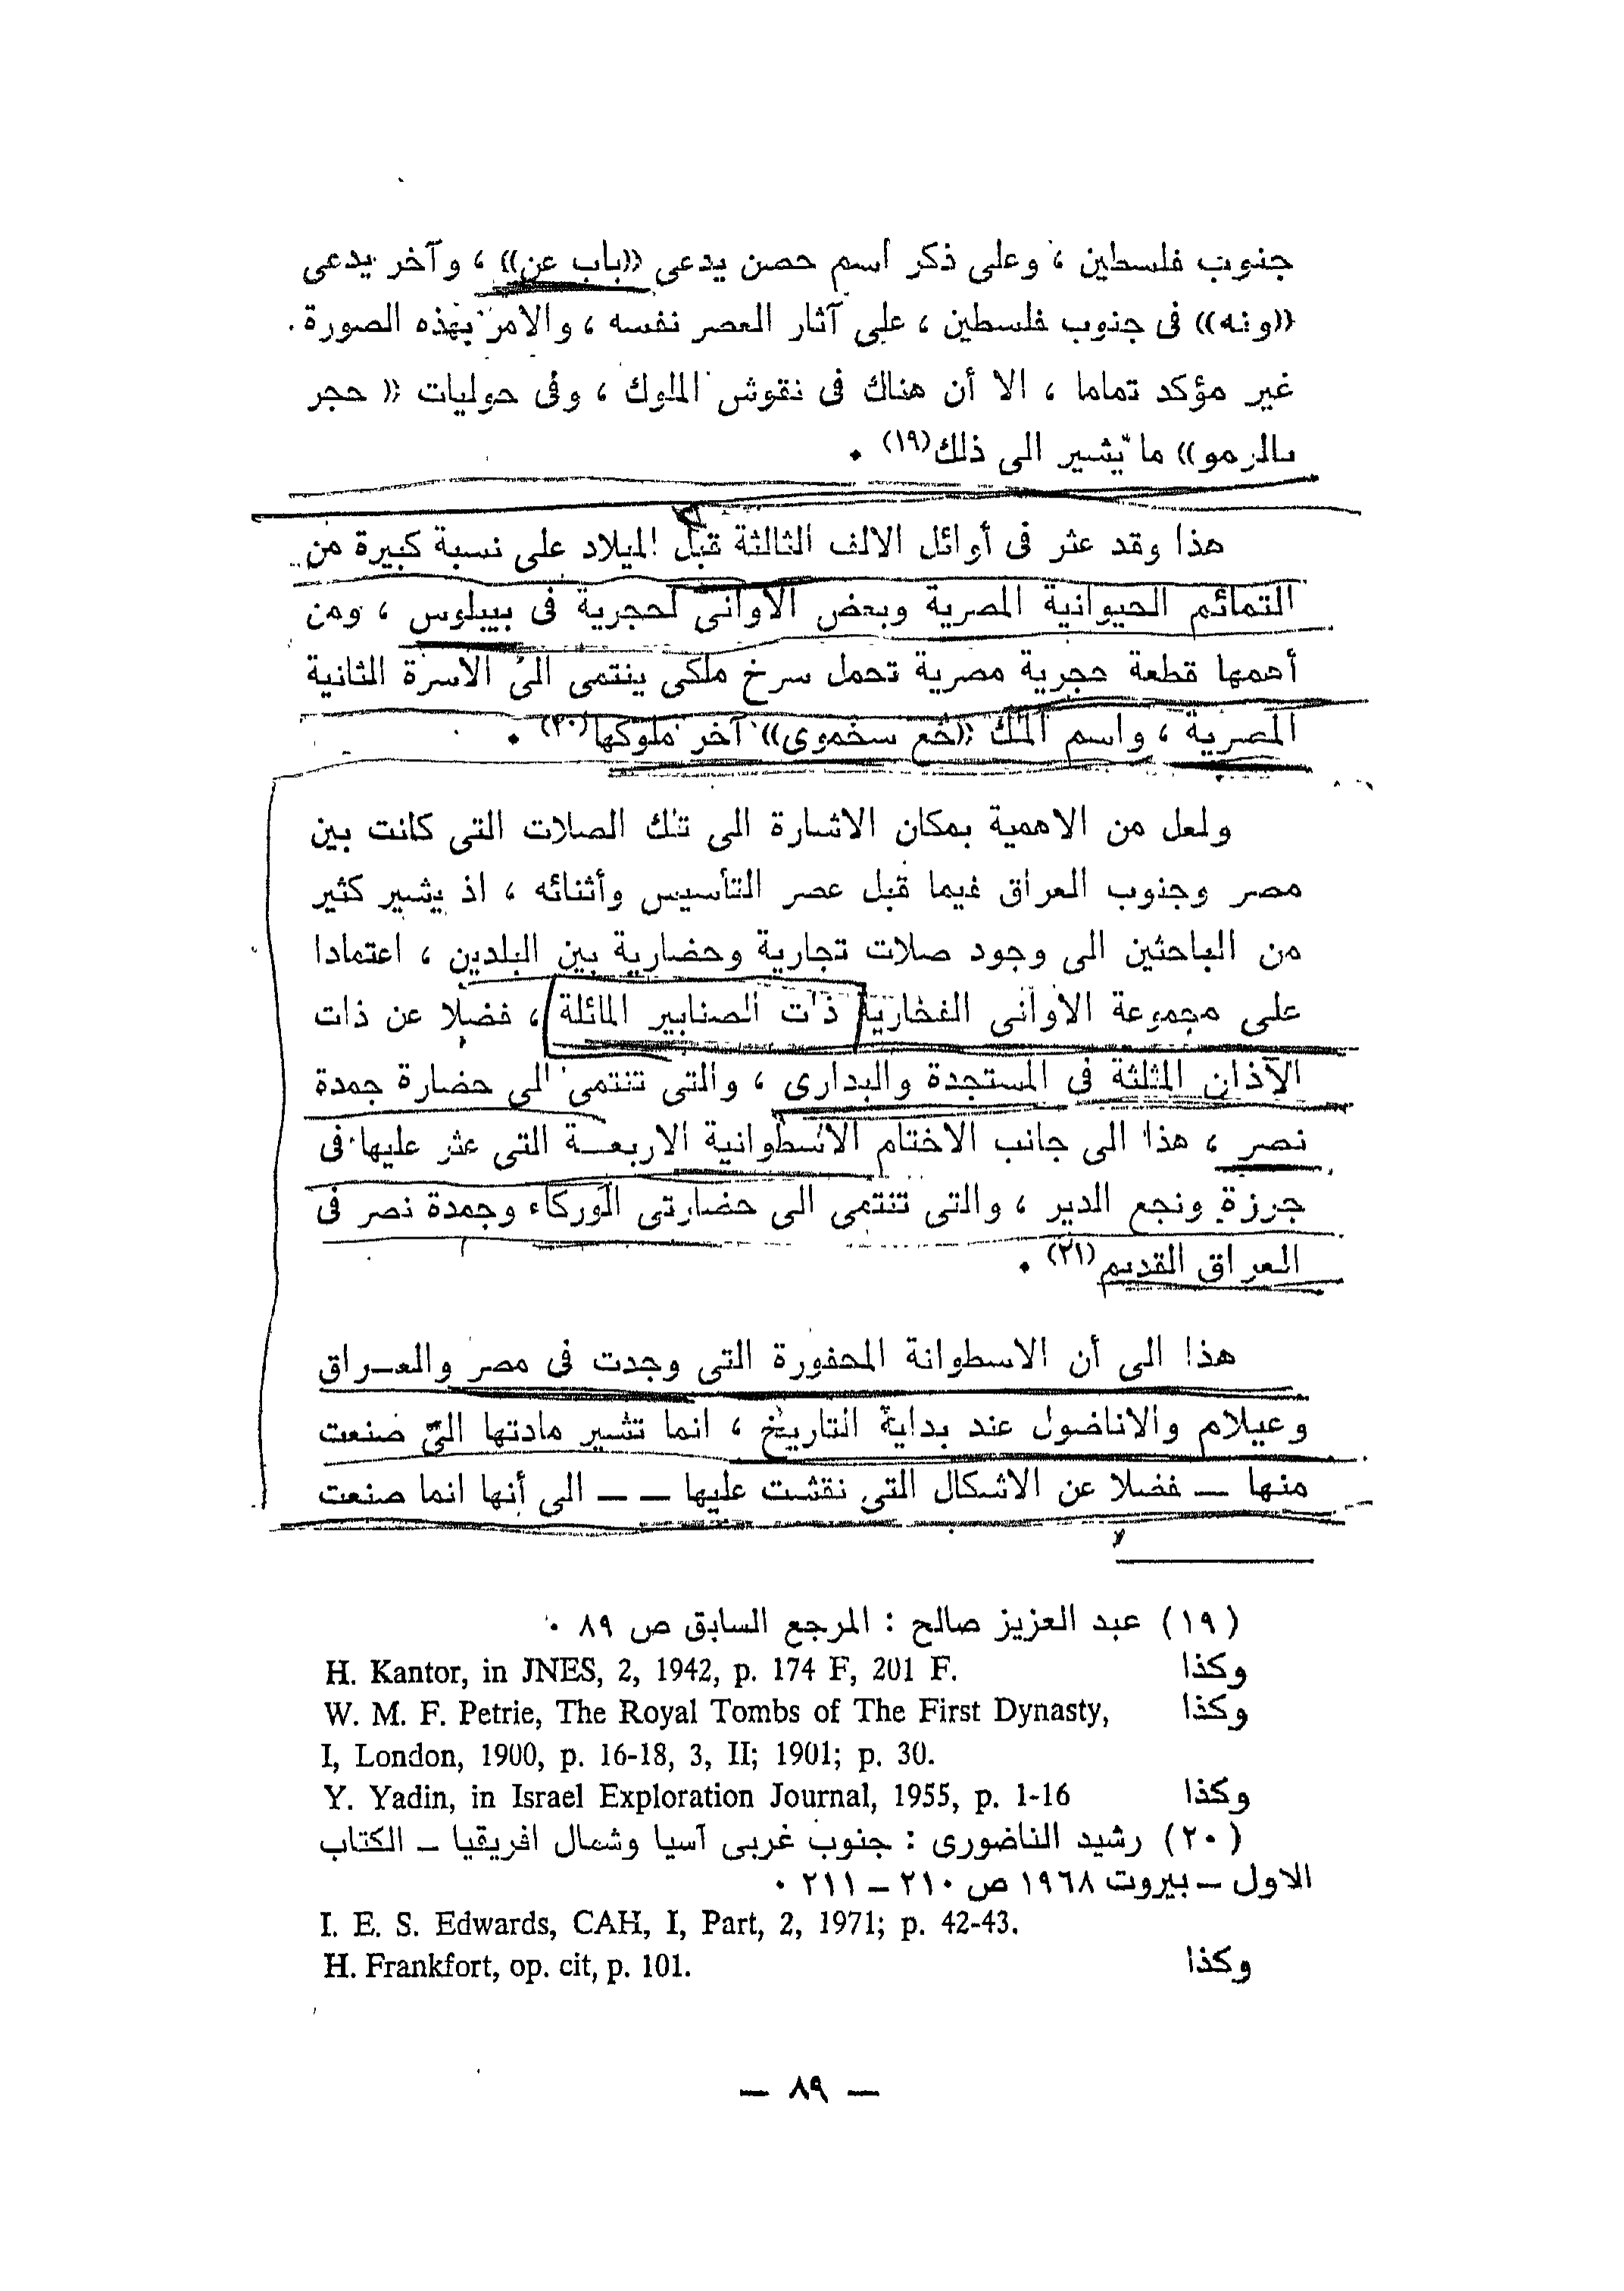 جنوب فلسطين ، وعلى ذكر اسم حصن يدعى «باب عن» ، وآخر يدعى
«ونه» فى جنوب فلسطين ، على آثار العصر نفسه ، والامر بهذه الصورة
غير مؤكد تماما ، الا أن هناك فى نقوش الملوك ، وفى حوليات « حجر
بالرمو» ما يشير الى ذلك(١٩) .
هذا وقد عثر فى أوائل الالف الثالثة قبل الميلاد على نسبة كبيرة من
التمائم الحيوانية المصرية وبعض الأوانى لحجرية فى بيبلوس ، ومن
أهمها قطعة حجرية مصرية تحمل سرخ ملكى ينتمى الى الاسرة الثانية
المصرية ، واسم الملك «خع سخموى» آخر ملوكها(٢٠) .
ولعل من الاهمية بمكان الاشارة الى تلك الصلات التى كانت بين
مصر وجنوب العراق فيما قبل عصر التأسيس وأثنائه ، اذ يشير كثير
من الباحثين الى وجود صلات تجارية وحضارية بين البلدين ، اعتمادا
على مجموعة الأوانى الفخارية ذات الصنابير المائلة ، فضلا عن ذات
الآذان المثلثة فى المستجدة والبدارى ، والتى تنتمى الى حضارة جمدة
نصر ، هذا الى جانب الاختام الاسطوانية الاربعـــة التى عثر عليها فى
جرزة ونجع الدير ، والتى تنتمى الى حضارتى الوركاء وجمدة نصر فى
العراق القديم(٢١) .
هذا الى أن الاسطوانة المحفورة التى وجدت فى مصر والعــراق
وعيلام والاناضول عند بداية التاريخ ، انما تشير مادتها الى صنعت
منها — فضلا عن الاشكال التى نقشت عليها — — الى أنها انما صنعت
(١٩) عبد العزيز صالح : المرجع السابق ص ٨٩ .
وكذا H. Kantor, in JNES, 2, 1942, p. 174 F, 201 F.
وكذا W. M. F. Petrie, The Royal Tombs of The First Dynasty,
I, London, 1900, p. 16-18, 3, II; 1901; p. 30.
وكذا Y. Yadin, in Israel Exploration Journal, 1955, p. 1-16
(٢٠) رشيد الناضورى : جنوب غربى آسيا وشمال افريقيا — الكتاب
الاول — بيروت ١٩٦٨ ص ٢١٠ — ٢١١ .
I. E. S. Edwards, CAH, I, Part, 2, 1971; p. 42-43.
وكذا H. Frankfort, op. cit, p. 101.
— ٨٩ —